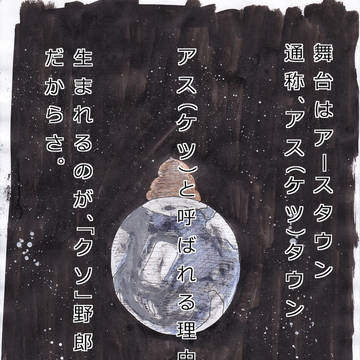 舞台はアースタウン
通称、アス(ケツ)タウン
アス(ケツ)と呼ばれる理由
生まれるのが、「クソ」野郎
だからさ。